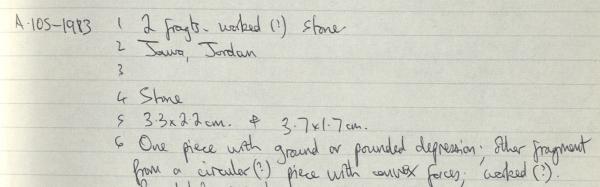 A.105-1983 1 2 fragts. worked (?) stone
2 Jawa, Jordan
3
4 Stone
5 3.3x2.2cm. & 3.7x1.7cm.
6 One piece with ground or pounded depression; other fragment
from a circular (?) piece with convex faces; worked (?).